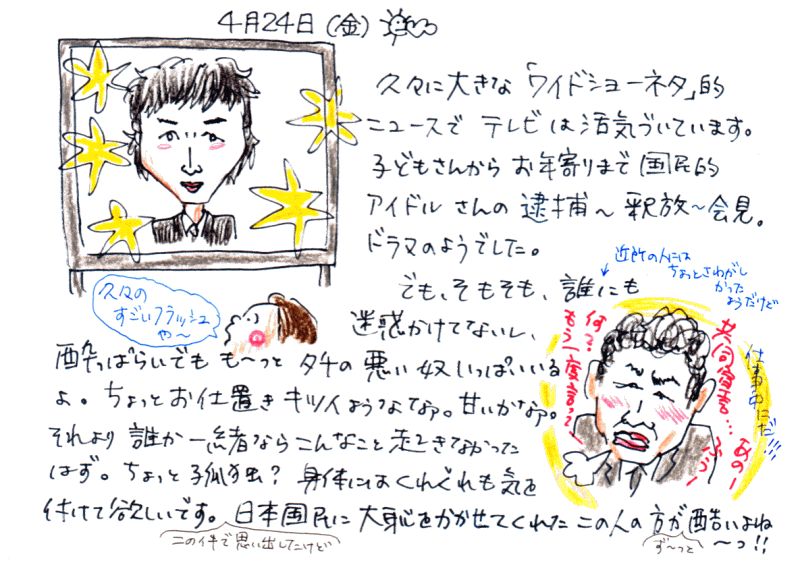 4月24日(金)
久々に大きな「ワイドショーネタ」的
ニュースで テレビは活気づいています。
子どもさんから お年寄りまで 国民的
アイドルさんの 逮捕〜釈放〜会見。
ドラマのようでした。
近所の人には
ちょっとさわがし
かった
ようだけど
でも、そもそも、誰にも
久々の
すごいフラッシュ
や〜
迷惑かけてないし、
酔っぱらいでも も〜っと タチの 悪い 奴 いっぱいいる
よ。ちょっとお仕置き キツイようなよなぁ。甘いかなぁ。
それより 誰か 一緒ならこんなこと 起きなかった
はず。ちょっと孤独? 身体にはくれぐれも気を
付けて欲しいです。日本国民に 大恥をかかせてくれた この人の 方が 酷いよね
〜っ!!
この件で思い出したけど
ず〜っと
何て?
もう一度言って
共同宣言…
あの〜
ふぅ〜
仕事中にだ!!!